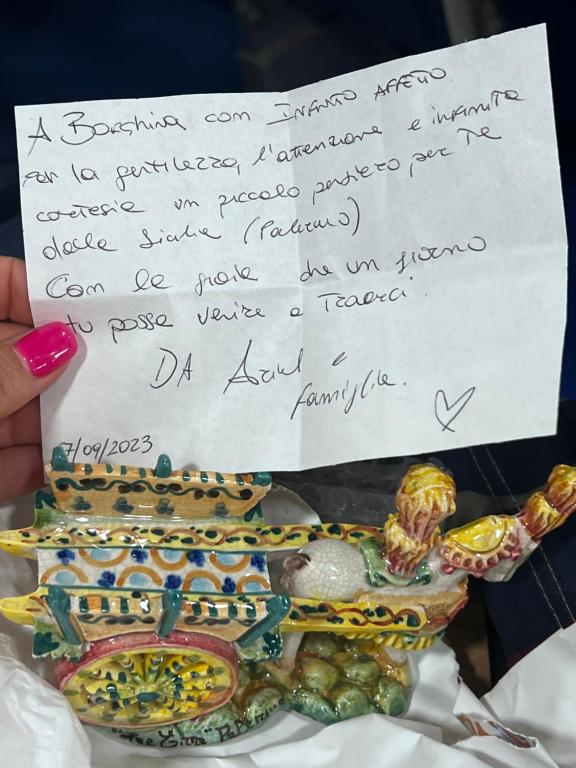 A Borghina con INFINITO AFFETTO
per la gentilezza, l'attenzione e infinita
cortesia un piccolo pensiero per Te
dalla Sicilia (Palermo)
Con la gioia che un giorno
tu possa venire a Trovarci.
DA e
famiglia.
7/09/2023